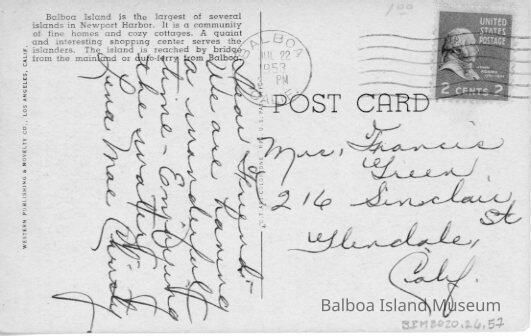 Balboa Island is the largest of several
islands in Newport Harbor. It is a community
of fine homes and cozy cottages. A quaint
and interesting shopping center serves the
islanders. The island is reached by bridge
from the mainland or auto-ferry from Balboa.
WESTERN PUBLISHING & NOVELTY CO., LOS ANGELES, CALIF.
Dear Friend:-
We are having
a wonderful
time - Enjoying
the water
Lena Mae
BALBOA
JUL 22
1953
PM
CALIF.
UNITED
STATES
POSTAGE
2 CENTS 2
POST CARD
Mrs. Francis
Green
216 Sinclair
St
Glendale,
Calif.
Balboa Island Museum
BIM2020.26.57
100